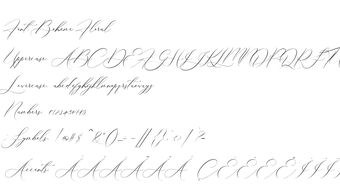 Font Boheme Floral
Uppercase ABCDEFGHIJKLMNOPQRST
Lowercase abcdefghijklmnopqrstuvwxyz
Numbers 0123456789
Symbols
Accents ÀÁÂÃÄÅ ÇÈÉÊËÌÍÎ